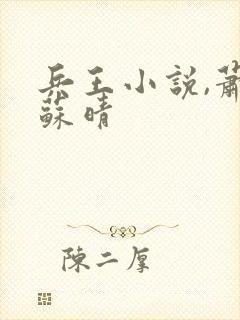 兵王小説,蕭
蘇晴
陳二厚